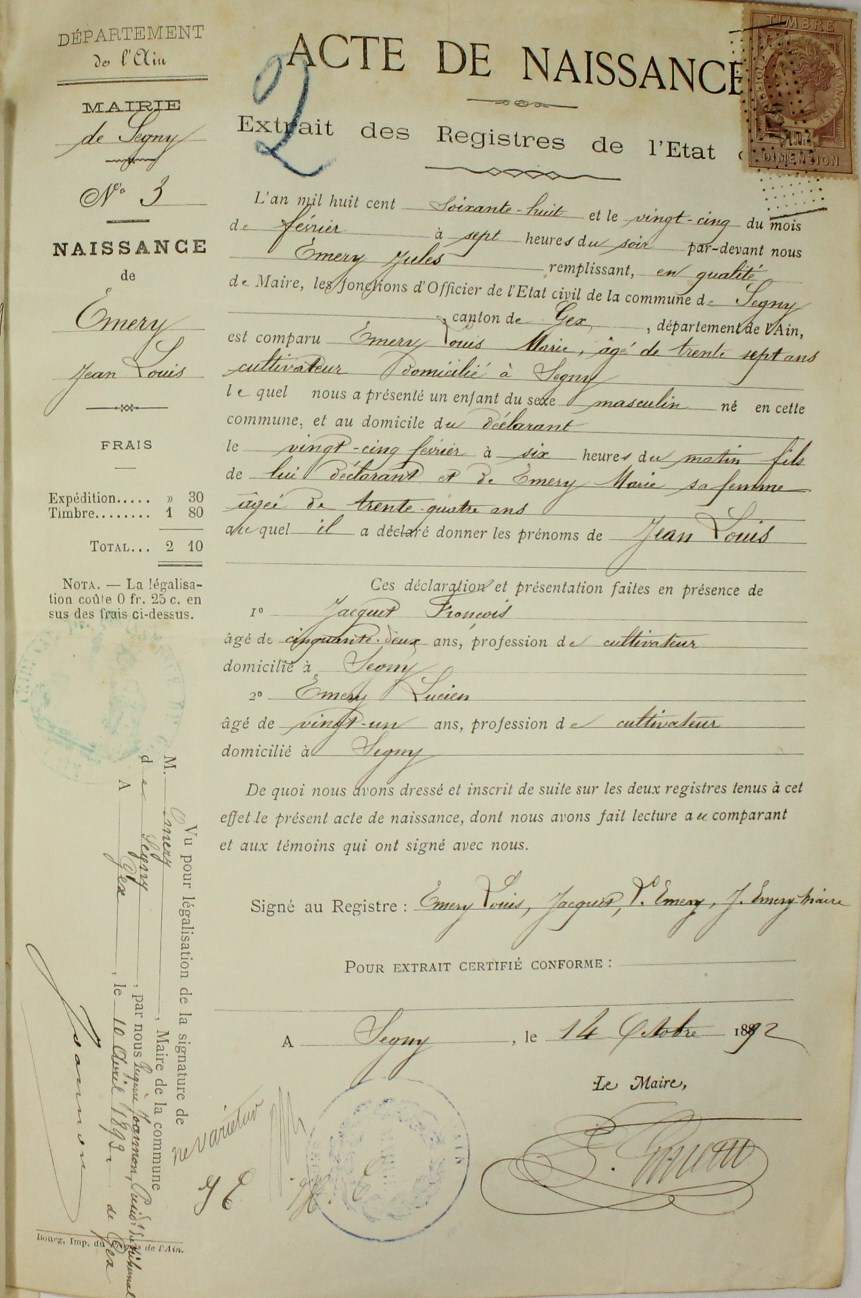 DÉPARTEMENT
de l'Ain
MAIRIE
de Segny
N° 3
NAISSANCE
de
Émery
Jean Louis
FRAIS
Expédition..... » 30
Timbre........ 1 80
TOTAL... 2 10
NOTA. — La légalisa-
tion coûte 0 fr. 25 c. en
sus des frais ci-dessus.
ACTE DE NAISSANCE
2
TIMBRE
DIMENSION
Extrait des Registres de l'Etat
L'an mil huit cent soixante-huit et le vingt-cinq du mois
de février à sept heures du soir par-devant nous
Émery Jules remplissant, en qualité
de Maire, les fonctions d'Officier de l'Etat civil de la commune de Segny
, canton de Gex, département de l'Ain,
est comparu Émery Louis Marie, âgé de trente sept ans
cultivateur domicilié à Segny
lequel nous a présenté un enfant du sexe masculin né en cette
commune, et au domicile du déclarant
le vingt-cinq février à six heures du matin fils
de lui déclarant et de Émery Marie sa femme
âgée de trente-quatre ans
auquel il a déclaré donner les prénoms de Jean Louis
Ces déclaration et présentation faites en présence de
1° Jacquet François
âgé de cinquante-deux ans, profession de cultivateur
domicilié à Segny
2° Émery Lucien
âgé de vingt-un ans, profession de cultivateur
domicilié à Segny
De quoi nous avons dressé et inscrit de suite sur les deux registres tenus à cet
effet le présent acte de naissance, dont nous avons fait lecture au comparant
et aux témoins qui ont signé avec nous.
Signé au Registre : Émery Louis, Jacquet, L. Émery, J. Émery Maire
POUR EXTRAIT CERTIFIÉ CONFORME :
A Segny, le 14 Octobre 1892
Le Maire,
Vu pour légalisation de la signature de
M. Émery, Maire de la commune
de Segny, par nous Joannon, Présidt du tribunal
A Gex, le 10 Avril 1893. de Gex
Joannon
ne varietur
Bourg, Imp. du de l'Ain.